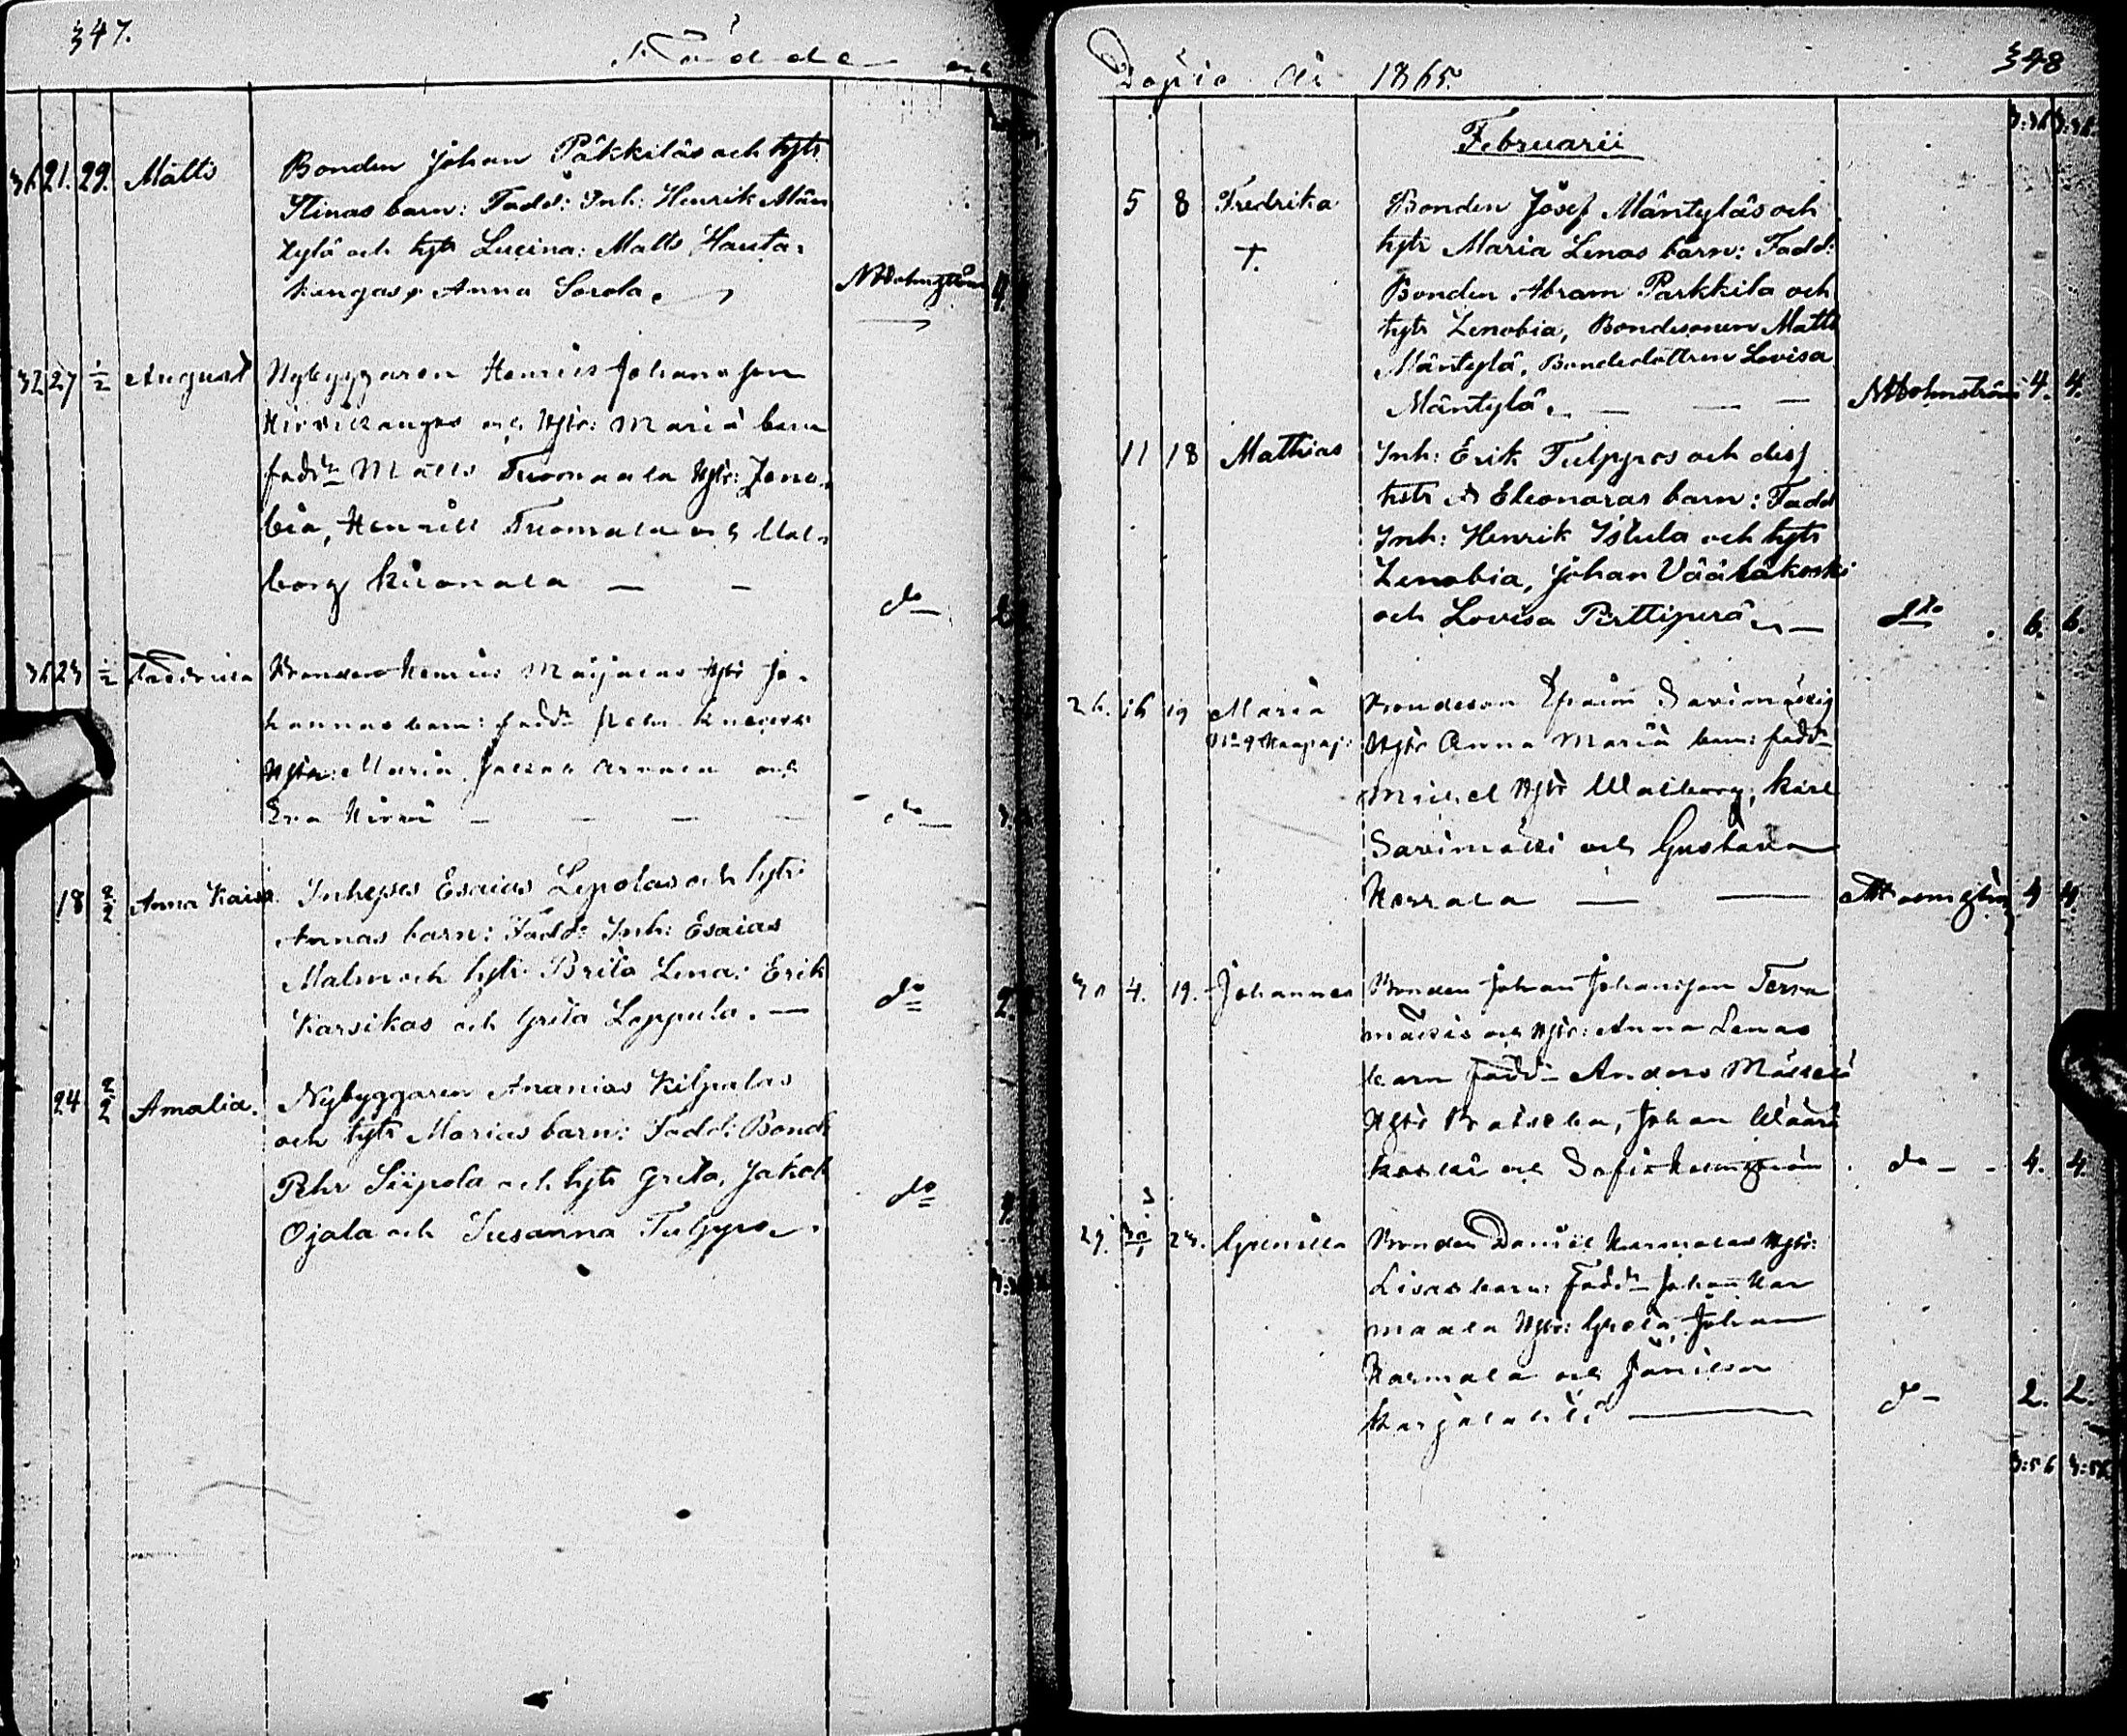 347.
Födde och
36. 21. 29. Matts Bonden Johan Päkkiläs och hstr
Stinas barn: Fadd: Inh: Henrik Män
tylä och hstr Lucina: Matts Hauta-
kangas, Anna Sorola. NHolmström 4.
32 27 1/2 August Nybyggaren Henrik Johansson
Hirvikangas och Hstr: Maria barn
fadd: Matts Tuomaala Hstr: Zeno-
bia, Henrik Tuomala och Wal-
borg Kuonala — — do
36 23 1/2 Fredrika Bonden Henrik Maijalas Hstr Jo-
hannas barn: fadd:
Hstr: Maria, Jakob och
Eva Hirvi — — — — do
18 2/2 Anna Kaisa Inhyses Esaias Lepolas och hstr
Annas barn: Fadd: Inh: Esaias
Malm och hstr Brita Lena: Erik
Karsikas och Greta Loppula. — do 2.
24 2/2 Amalia. Nybyggaren Ananias Kilpalas
och hstr Marias barn: Fadd: Bond
Pehr Siipola och hstr Greta, Jakob
Ojala och Susanna Tulppo. do
348
Döpte År 1865.
3:36 3:36
Februarii
5 8 Fredrika Bonden Josef Mäntyläs och
+. hstr Maria Lenas barn: Fadd:
Bonden Abram Parkkila och
hstr Zenobia, Bondesonen Matts
Mäntylä, Bondedottren Lovisa
Mäntylä. — — — NHolmström 4. 4.
11 18 Mathias Inh: Erik Tulppos och dess
hstr Eleonoras barn: Fadd
Inh: Henrik Istula och hstr
Zenobia, Johan Vääräkoski
och Lovisa Perttiperä — dto 6. 6.
26. 16 19 Maria Bondeson Efraim Savimäkis
Hstr Anna Maria barn: fadd:
Michel Hstr Walborg, Karl
Savimäki och Gustava
Korrala — — NHolmström 4 4
30 4. 19. Johannes Bonden Johan Johansson Terva
mäkis och Hstr: Anna Lenas
barn fadd: Anders Mäkelä
Hstr Batseba, Johan Wäärä
koski och Sofia Holmström do — 4. 4.
29. 23. Gunilla Bonden Daniel Karmalas Hstr:
Lisas barn: Fadd: Johan Kar
maala Hstr: Greta, Johan
Karmala och
Karjalahti — do 2. 2.
3:56 3:56